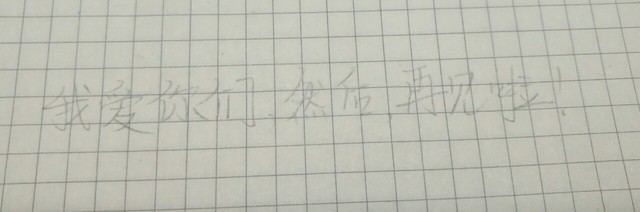 我爱你们、然后、再见啦！